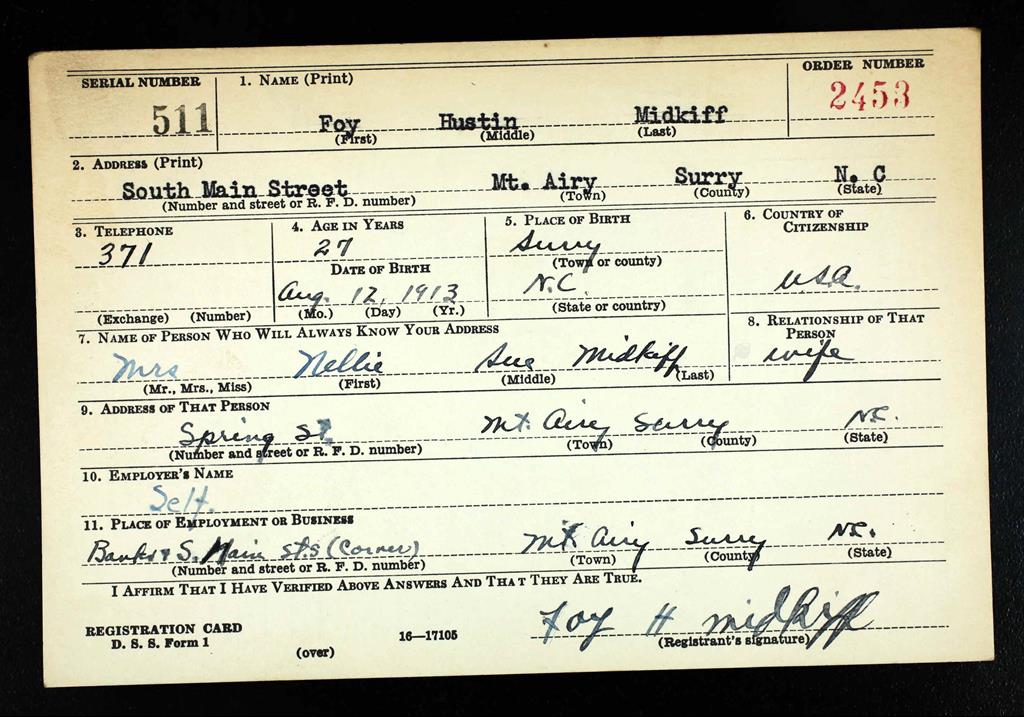 SERIAL NUMBER 1. NAME (Print) ORDER NUMBER
511 Foy Hustin Midkiff 2453
(First) (Middle) (Last)
2. ADDRESS (Print)
South Main Street Mt. Airy Surry N. C
(Number and street or R. F. D. number) (Town) (County) (State)
3. TELEPHONE 4. AGE IN YEARS 5. PLACE OF BIRTH 6. COUNTRY OF CITIZENSHIP
371 27 Surry
(Town or county)
DATE OF BIRTH N.C. U.S.A.
Aug. 12, 1913
(Exchange) (Number) (Mo.) (Day) (Yr.) (State or country)
7. NAME OF PERSON WHO WILL ALWAYS KNOW YOUR ADDRESS 8. RELATIONSHIP OF THAT PERSON
Mrs Nellie Sue Midkiff wife
(Mr., Mrs., Miss) (First) (Middle) (Last)
9. ADDRESS OF THAT PERSON
Spring St. Mt. Airy Surry N.C.
(Number and street or R. F. D. number) (Town) (County) (State)
10. EMPLOYER'S NAME
Self.
11. PLACE OF EMPLOYMENT OR BUSINESS
Banks & S. Main Sts (Corner) Mt. Airy Surry N.C.
(Number and street or R. F. D. number) (Town) (County) (State)
I AFFIRM THAT I HAVE VERIFIED ABOVE ANSWERS AND THAT THEY ARE TRUE.
Foy H Midkiff
REGISTRATION CARD 16—17105 (Registrant's signature)
D. S. S. Form 1 (over)